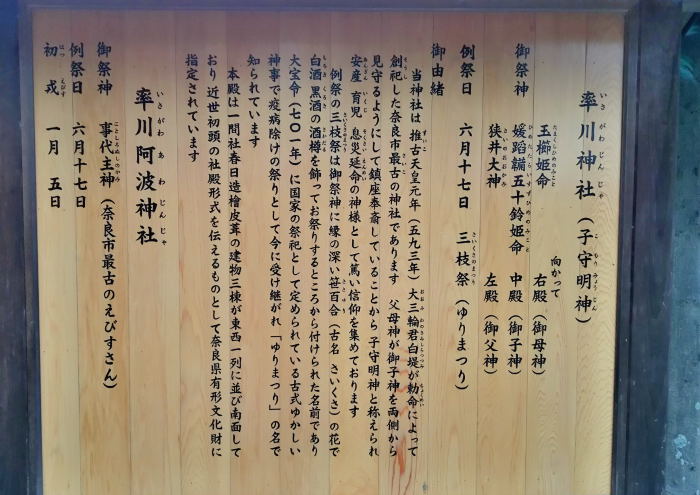 率川神社（子守明神）
向かって
御祭神 玉櫛姫命 右殿（御母神）
媛蹈韛五十鈴姫命 中殿（御子神）
狭井大神 左殿（御父神）
例祭日 六月十七日 三枝祭（ゆりまつり）
御由緒
当神社は 推古天皇元年（五九三年）大三輪君白堤が勅命によって
創祀した奈良市最古の神社であります 父母神が御子神を両側から
見守るようにして鎮座奉斎していることから 子守明神と称えられ
安産 育児 息災延命の神様として篤い信仰を集めております
例祭の三枝祭は御祭神に縁の深い笹百合（古名 さいくさ）の花で
白酒 黒酒の酒樽を飾ってお祭りするところから付けられた名前であり
大宝令（七〇一年）に国家の祭祀として定められている古式ゆかしい
神事で疫病除けの祭りとして今に受け継がれ「ゆりまつり」の名で
知られています
本殿は一間社春日造檜皮葺の建物三棟が東西一列に並び南面して
おり 近世初頭の社殿形式を伝えるものとして奈良県有形文化財に
指定されています
率川阿波神社
御祭神 事代主神（奈良市最古のえびすさん）
例祭日 六月十七日
初戎 一月 五日